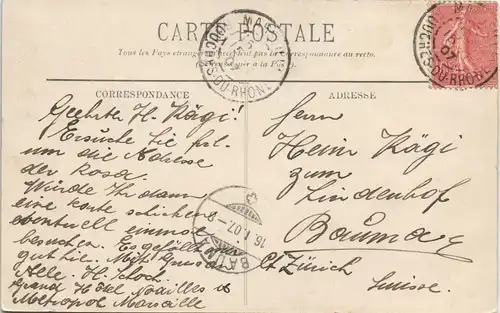 CARTE POSTALE
Tous les Pays étrangers n'acceptent pas la Correspondance au recto.
(Se renseigner à la Poste)
CORRESPONDANCE
Geehrter H. Kägi!
Ersuche Sie frl.
um die Adresse
der Rosa.
Würde Ihr dann
eine Karte schicken &
eventuell einmal
besuchen. Es gefällt mir
gut hie. Mit Gruss
Alle. H. Schoch
Grand Hôtel Noailles &
Métropole Marseille
ADRESSE
Herrn
Heinr. Kägi
zum
Lindenhof
Bauma
Ct. Zürich
Suisse.
BOUCHES-DU-RHONE
07
BOUCHES-DU-RHONE
07
BAUMA
16.I.07